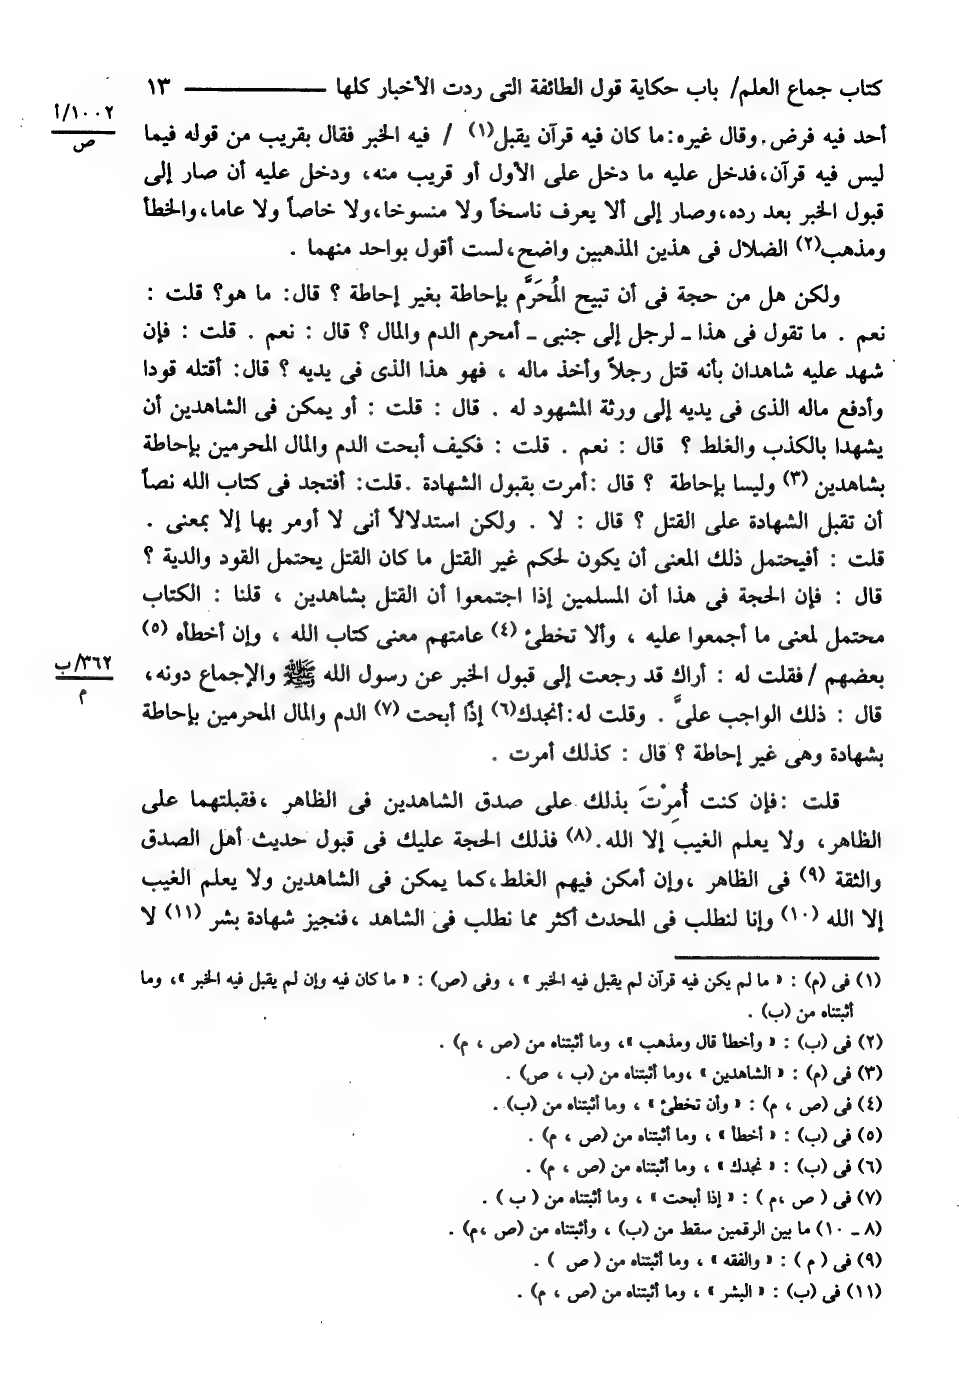 كتاب جماع العلم/ باب حكاية قول الطائفة التى ردت الأخبار كلها ١٣
١٠٠٢/أ
ص
أحد فيه فرض. وقال غيره: ما كان فيه قرآن يقبل(١) / فيه الخبر فقال بقريب من قوله فيما
ليس فيه قرآن، فدخل عليه ما دخل على الأول أو قريب منه، ودخل عليه أن صار إلى
قبول الخبر بعد رده، وصار إلى ألا يعرف ناسخاً ولا منسوخا، ولا خاصاً ولا عاما، والخطأ
ومذهب(٢) الضلال فى هذين المذهبين واضح، لست أقول بواحد منهما .
ولكن هل من حجة فى أن تبيح المُحَرَّم بإحاطة بغير إحاطة ؟ قال: ما هو؟ قلت :
نعم . ما تقول فى هذا ـ لرجل إلى جنبى ـ أمحرم الدم والمال ؟ قال : نعم . قلت : فإن
شهد عليه شاهدان بأنه قتل رجلاً وأخذ ماله ، فهو هذا الذى فى يديه ؟ قال: أقتله قودا
وأدفع ماله الذى فى يديه إلى ورثة المشهود له . قال : قلت : أو يمكن فى الشاهدين أن
يشهدا بالكذب والغلط ؟ قال : نعم . قلت : فكيف أبحت الدم والمال المحرمين بإحاطة
بشاهدين (٣) وليسا بإحاطة ؟ قال :أمرت بقبول الشهادة .قلت: أفتجد فى كتاب الله نصاً
أن تقبل الشهادة على القتل ؟ قال : لا . ولكن استدلالاً أنى لا أومر بها إلا بمعنى .
قلت : أفيحتمل ذلك المعنى أن يكون لحكم غير القتل ما كان القتل يحتمل القود والدية ؟
قال : فإن الحجة فى هذا أن المسلمين إذا اجتمعوا أن القتل بشاهدين ، قلنا : الكتاب
محتمل لمعنى ما أجمعوا عليه ، وألا تخطئ (٤) عامتهم معنى كتاب الله ، وإن أخطأه (٥)
٣٦٢/ب
م
بعضهم / فقلت له : أراك قد رجعت إلى قبول الخبر عن رسول الله ﷺ والإجماع دونه،
قال : ذلك الواجب علىَّ . وقلت له: أنجدك(٦) إذًا أبحت (٧) الدم والمال المحرمين بإحاطة
بشهادة وهى غير إحاطة ؟ قال : كذلك أمرت .
قلت :فإن كنت أُمِرْتَ بذلك على صدق الشاهدين فى الظاهر ،فقبلتهما على
الظاهر، ولا يعلم الغيب إلا الله.(٨) فذلك الحجة عليك فى قبول حديث أهل الصدق
والثقة (٩) فى الظاهر ،وإن أمكن فيهم الغلط،كما يمكن فى الشاهدين ولا يعلم الغيب
إلا الله (١٠) وإنا لنطلب فى المحدث أكثر مما نطلب فى الشاهد ،فنجيز شهادة بشر (١١) لا
(١) فى (م) : « ما لم يكن فيه قرآن لم يقبل فيه الخبر » ، وفى (ص) : « ما كان فيه وإن لم يقبل فيه الخبر »، وما
أثبتناه من (ب) .
(٢) فى (ب) : « وأخطأ قال ومذهب »، وما أثبتناه من (ص ، م) .
(٣) فى (م) : « الشاهدين » ،وما أثبتناه من (ب ، ص) .
(٤) فى (ص ، م) : « وأن تخطئ » ، وما أثبتناه من (ب) .
(٥) فى (ب) : « أخطأ » ، وما أثبتناه من (ص ، م) .
(٦) فى (ب) : « نجدك » ، وما أثبتناه من (ص ، م) .
(٧) فى ( ص ،م ) : « إذا أبحت » ، وما أثبتناه من ( ب ) .
(٨ ـ ١٠) ما بين الرقمين سقط من (ب) ، وأثبتناه من (ص ،م) .
(٩) فى ( م ) : « والفقه » ، وما أثبتناه من ( ص ) .
(١١) فى (ب) : « البشر » ، وما أثبتناه من (ص ، م) .